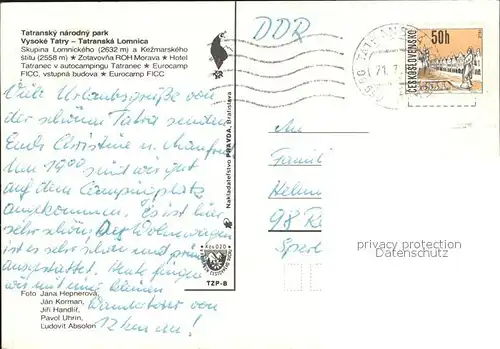 Tatranský národný park
Vysoké Tatry – Tatranská Lomnica
Skupina Lomnického (2632 m) a Kežmarského
štítu (2558 m) ★ Zotavovňa ROH Morava ★ Hotel
Tatranec v autocampingu Tatranec ★ Eurocamp
FICC, vstupná budova ★ Eurocamp FICC
Viele Urlaubsgrüße von
der schönen Tatra senden
Euch Christine u. Manfred
Um 19⁰⁰ sind wir gut
auf dem Campingplatz
angekommen. Es ist hier
sehr schön. Der Wohnwagen
ist es sehr schön und
ausgestattet. Heute fingen
wir mit einer kleinen
Wanderung von
12 km an!
Foto Jana Hepnerová,
Ján Korman,
Jiří Handlíř,
Pavol Uhrin,
Ľudovít Absolon
Nakladateľstvo PRAVDA, Bratislava
Kčs 0,20
TZP-B
DDR
21.
ČESKOSLOVENSKO
50h
An
Famil
Helmu
98
Sperl
privacy protection
Datenschutz